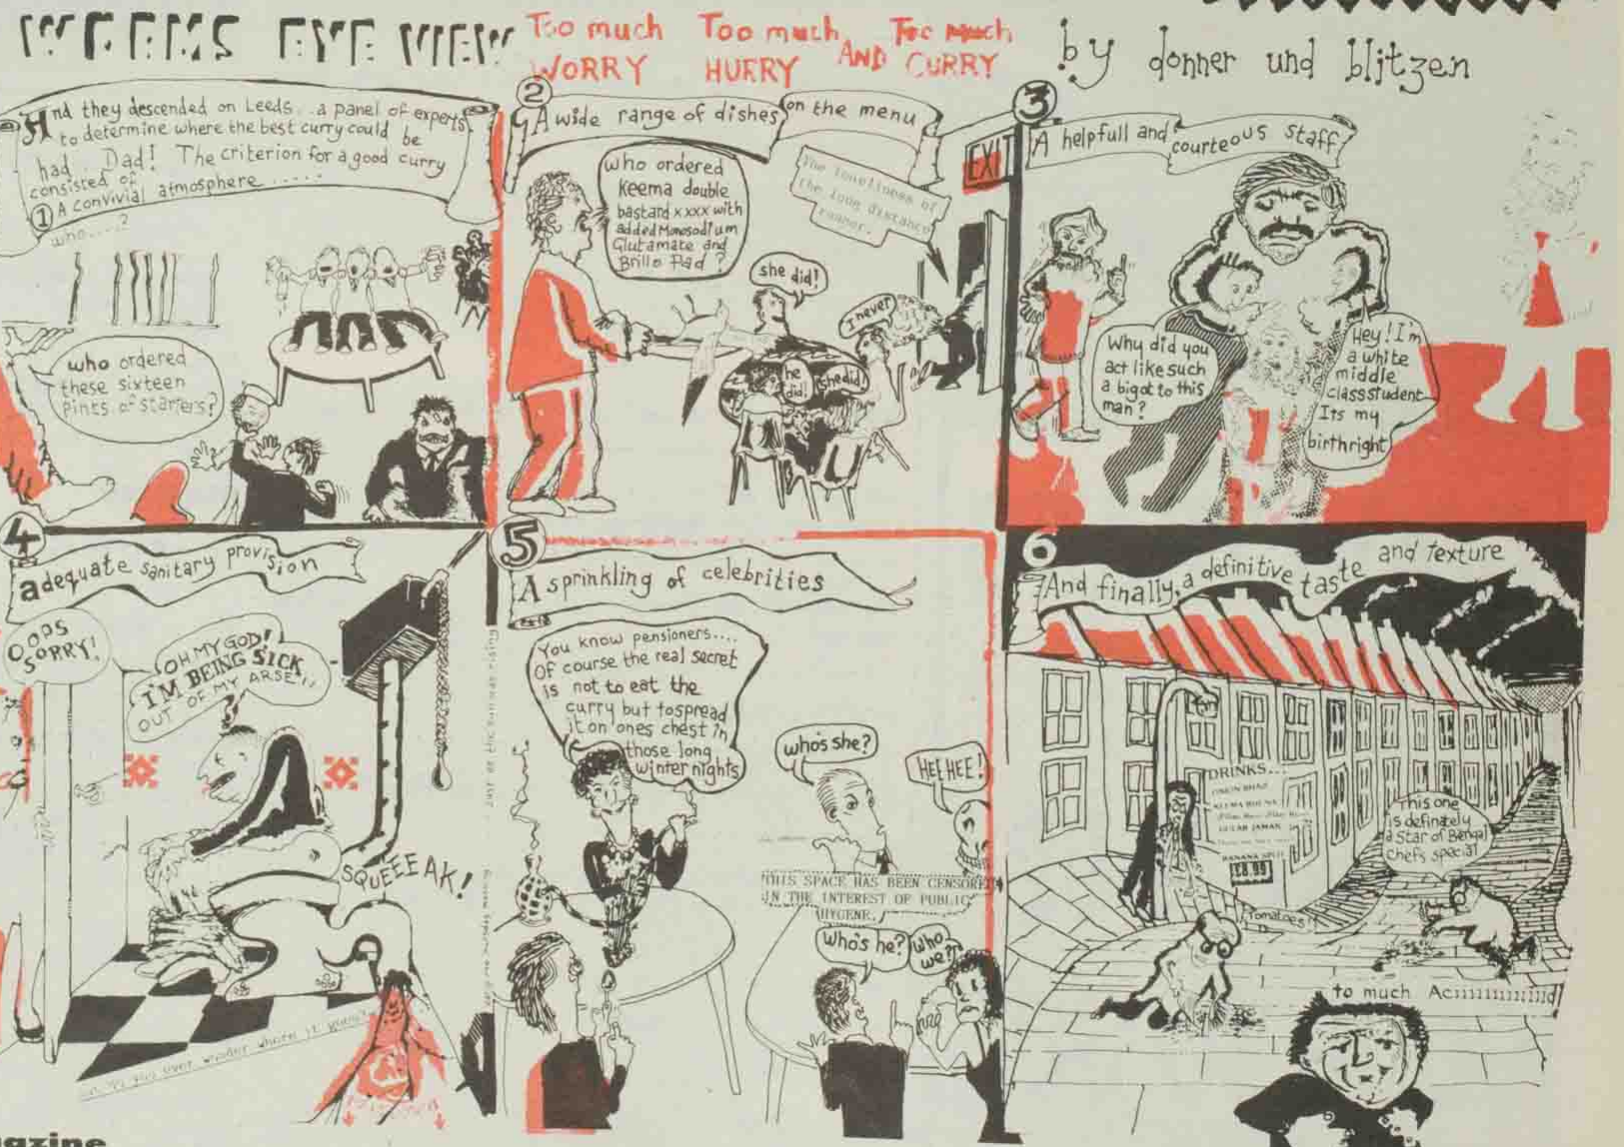 WEEMS EYE VIEW
Too much Too much Too much
WORRY HURRY AND CURRY
by donner und blitzen
And they descended on Leeds... a panel of experts
to determine where the best curry could be
had... Dad! The criterion for a good curry
consisted of
① A convivial atmosphere .....
who....?
who ordered
these sixteen
pints of starters?
②
A wide range of dishes on the menu
who ordered
Keema double
bastard xxxx with
added Monosodium
Glutamate and
Brillo Pad?
The loneliness of
the long distance
EXIT
she did!
I never
he
did!
she did!
③
A helpfull and courteous staff
Why did you
act like such
a bigot to this
man?
Hey! I'm
a white
middle
class student
Its my
birthright
④
adequate sanitary provision
OOPS
SORRY!
OH MY GOD!
I'M BEING SICK
OUT OF MY ARSE!!
SQUEEEAK!
ever wonder where it
⑤
A sprinkling of celebrities
You know pensioners....
Of course the real secret
is not to eat the
curry but to spread
it on ones chest in
those long
winter nights
who's she?
HEE HEE!
THIS SPACE HAS BEEN CENSORED
IN THE INTEREST OF PUBLIC
HYGENE.
Who's he?
Who
we?
6
And finally, a definitive taste and texture
DRINKS...
ONION BHAJI
KEEMA
GULAB JAMAN
BANANA SPLIT
£8.99
This one
is definately
a Star of Bengal
chefs special
Tomatoes!
to much Aciiiiiiiiiiiiid!
gazine